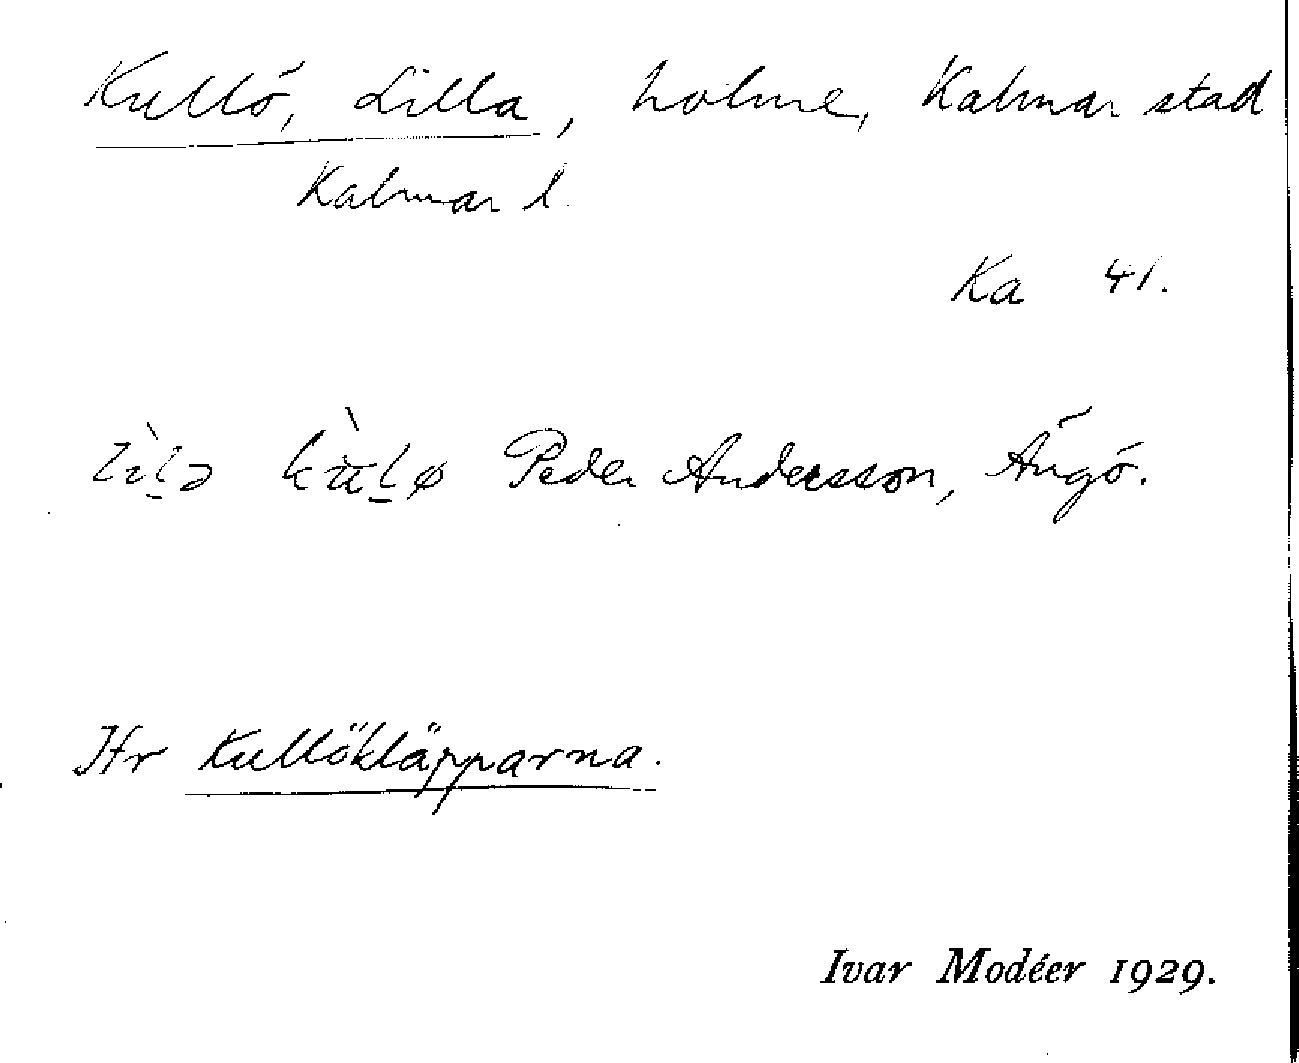 Kullö, Lilla, holme, Kalmar stad
Kalmar l.
Ka 41.
Peder Andersson, Ängö.
Jfr Kullökläpparna.
Ivar Modéer 1929.